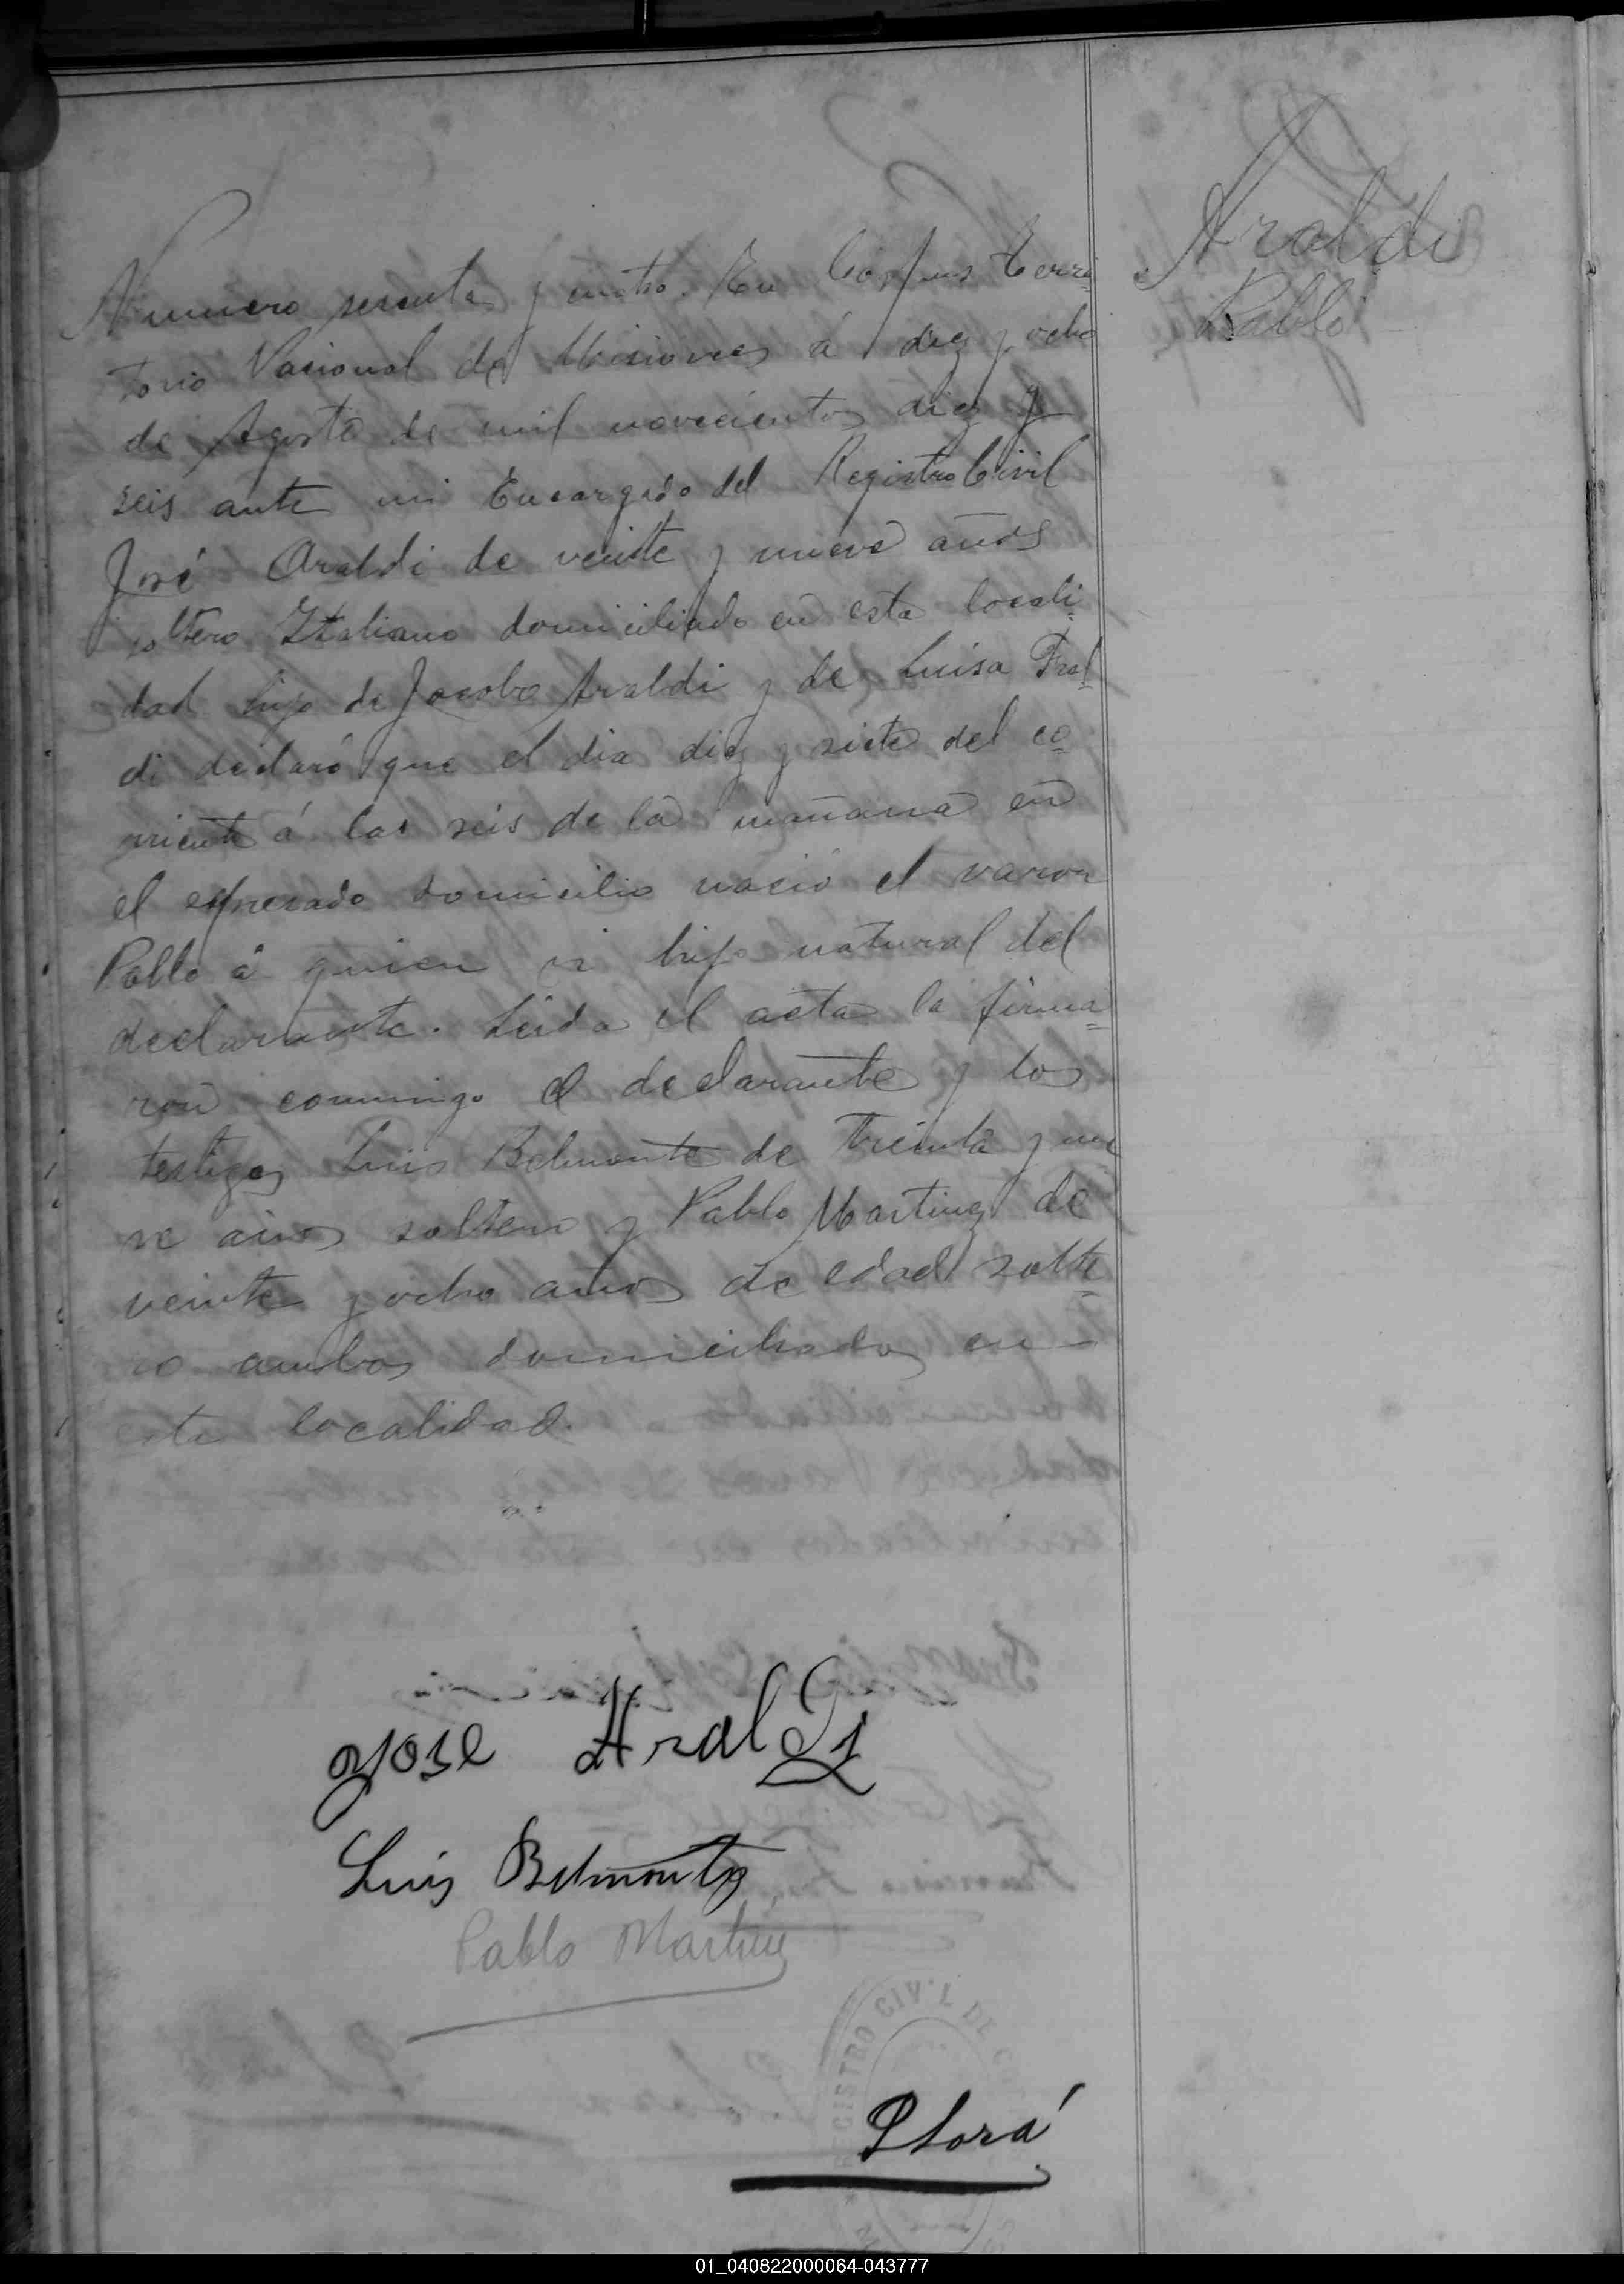 Araldi
Pablo
Numero sesenta y cuatro. En Corpus Terri
torio Nacional de Misiones á diez y ocho
de Agosto de mil novecientos diez y
seis ante mi Encargado del Registro Civil
José Araldi de veinte y nueve años
soltero Italiano domiciliado en esta locali
dad hijo de Jacobo Araldi y de Luisa Fral
di declaró que el dia diez y siete del co
rriente á las seis de la mañana en
el espresado domicilio nació el varon
Pablo á quien hijo natural del
declarante. Leida el acta la firma
ron conmigo el declarante y los
testigos Luis Belmonte de treinta y nue
ve años soltero y Pablo Martinez de
veinte y ocho años de edad solte
ro ambos domiciliados en
esta localidad.
Jose Araldi
Luis Belmonte
Pablo Martinez
REGISTRO CIVIL DE
01_040822000064-043777